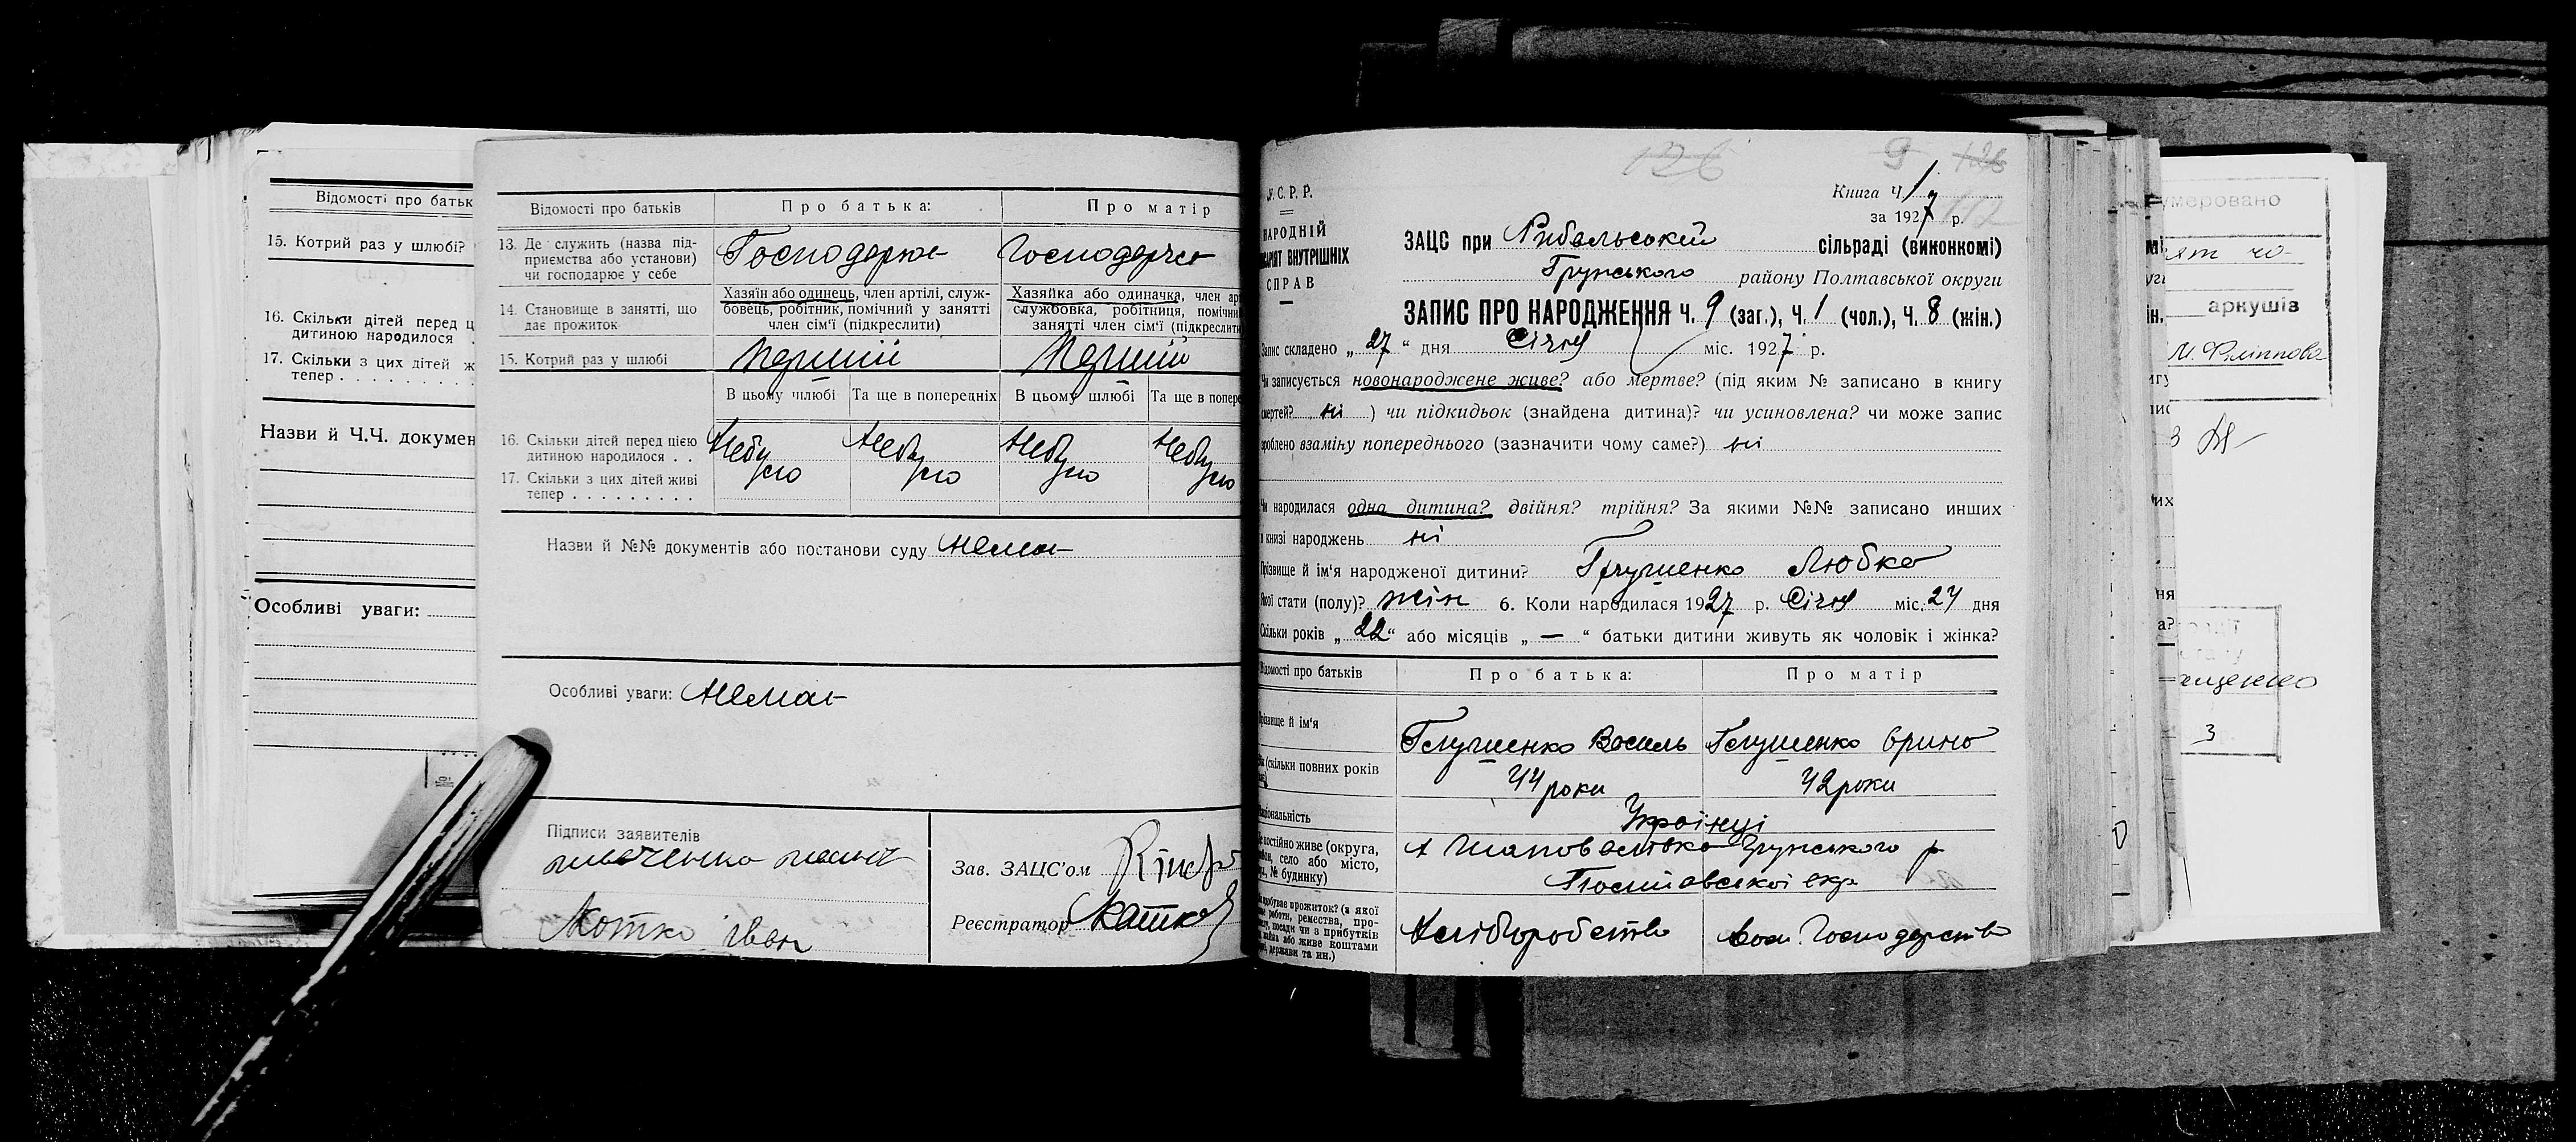 Відомості про батьк
15. Котрий раз у шлюбі?
16. Скільки дітей перед ц
дитиною народилося .
17. Скільки з цих дітей ж
тепер . . . . . . . . .
Назви й Ч.Ч. докумен
Особливі уваги:
Відомості про батьків
Про батька:
Про матір
13. Де служить (назва під-
приємства або установи)
чи господарює у себе
Господарює
Господарює
14. Становище в занятті, що
дає прожиток
Хазяїн або одинець, член артілі, служ-
бовець, робітник, помічний у занятті
член сім'ї (підкреслити)
Хазяйка або одиначка, член ар
службовка, робітниця, помічни
занятті член сім'ї (підкреслити
15. Котрий раз у шлюбі
Перший
Перший
В цьому шлюбі
Та ще в попередніх
В цьому шлюбі
Та ще в попере
16. Скільки дітей перед цією
дитиною народилося . .
17. Скільки з цих дітей живі
тепер . . . . . . . . .
Небу
ло
Небу
ло
Небу
ло
Небу
ло
Назви й №№ документів або постанови суду Нема
Особливі уваги: Нема
Підписи заявителів
Котко Іван
Зав. ЗАЦС'ом
Реєстратор Катко
126 9 126
У.С.Р.Р.
НАРОДНІЙ
САРІЯТ ВНУТРІШНІХ
СПРАВ
Книга Ч. 1
за 1927 р.
ЗАЦС при Рибальській сільраді (виконкомі)
Грунського району Полтавської округи
ЗАПИС ПРО НАРОДЖЕННЯ Ч. 9 (заг.), Ч. 1 (чол.), Ч. 8 (жін.)
Запис складено „ 27 “ дня Січня міс. 1927 р.
Чи записується новонароджене живе? або мертве? (під яким № записано в книгу
смертей? ні ) чи підкидьок (знайдена дитина)? чи усиновлена? чи може запис
зроблено взаміну попереднього (зазначити чому саме?) ні
Чи народилася одна дитина? двійня? трійня? За якими №№ записано инших
в книзі народжень ні
Прізвище й ім'я народженої дитини? Глушенко Любка
Якої стати (полу)? жін 6. Коли народилася 1927 р. Січня міс. 24 дня
Скільки років „ 22 “ або місяців „ — “ батьки дитини живуть як чоловік і жінка?
Відомості про батьків
Про батька:
Про матір
Прізвище й ім'я
Глушенко Василь
Глушенко Орина
Вік (скільки повних років
44 роки
42 роки
Національність
Українці
Де постійно живе (округа,
район, село або місто,
№ будинку)
х Шаповалівка Грунського р
Полтавської окр
добуває прожиток? (з якої
роботи, ремества, про-
посади чи з прибутків
майна або живе коштами
держави та ин.)
Хліборобство
дом. Господарство
умеровано
аркушів
3